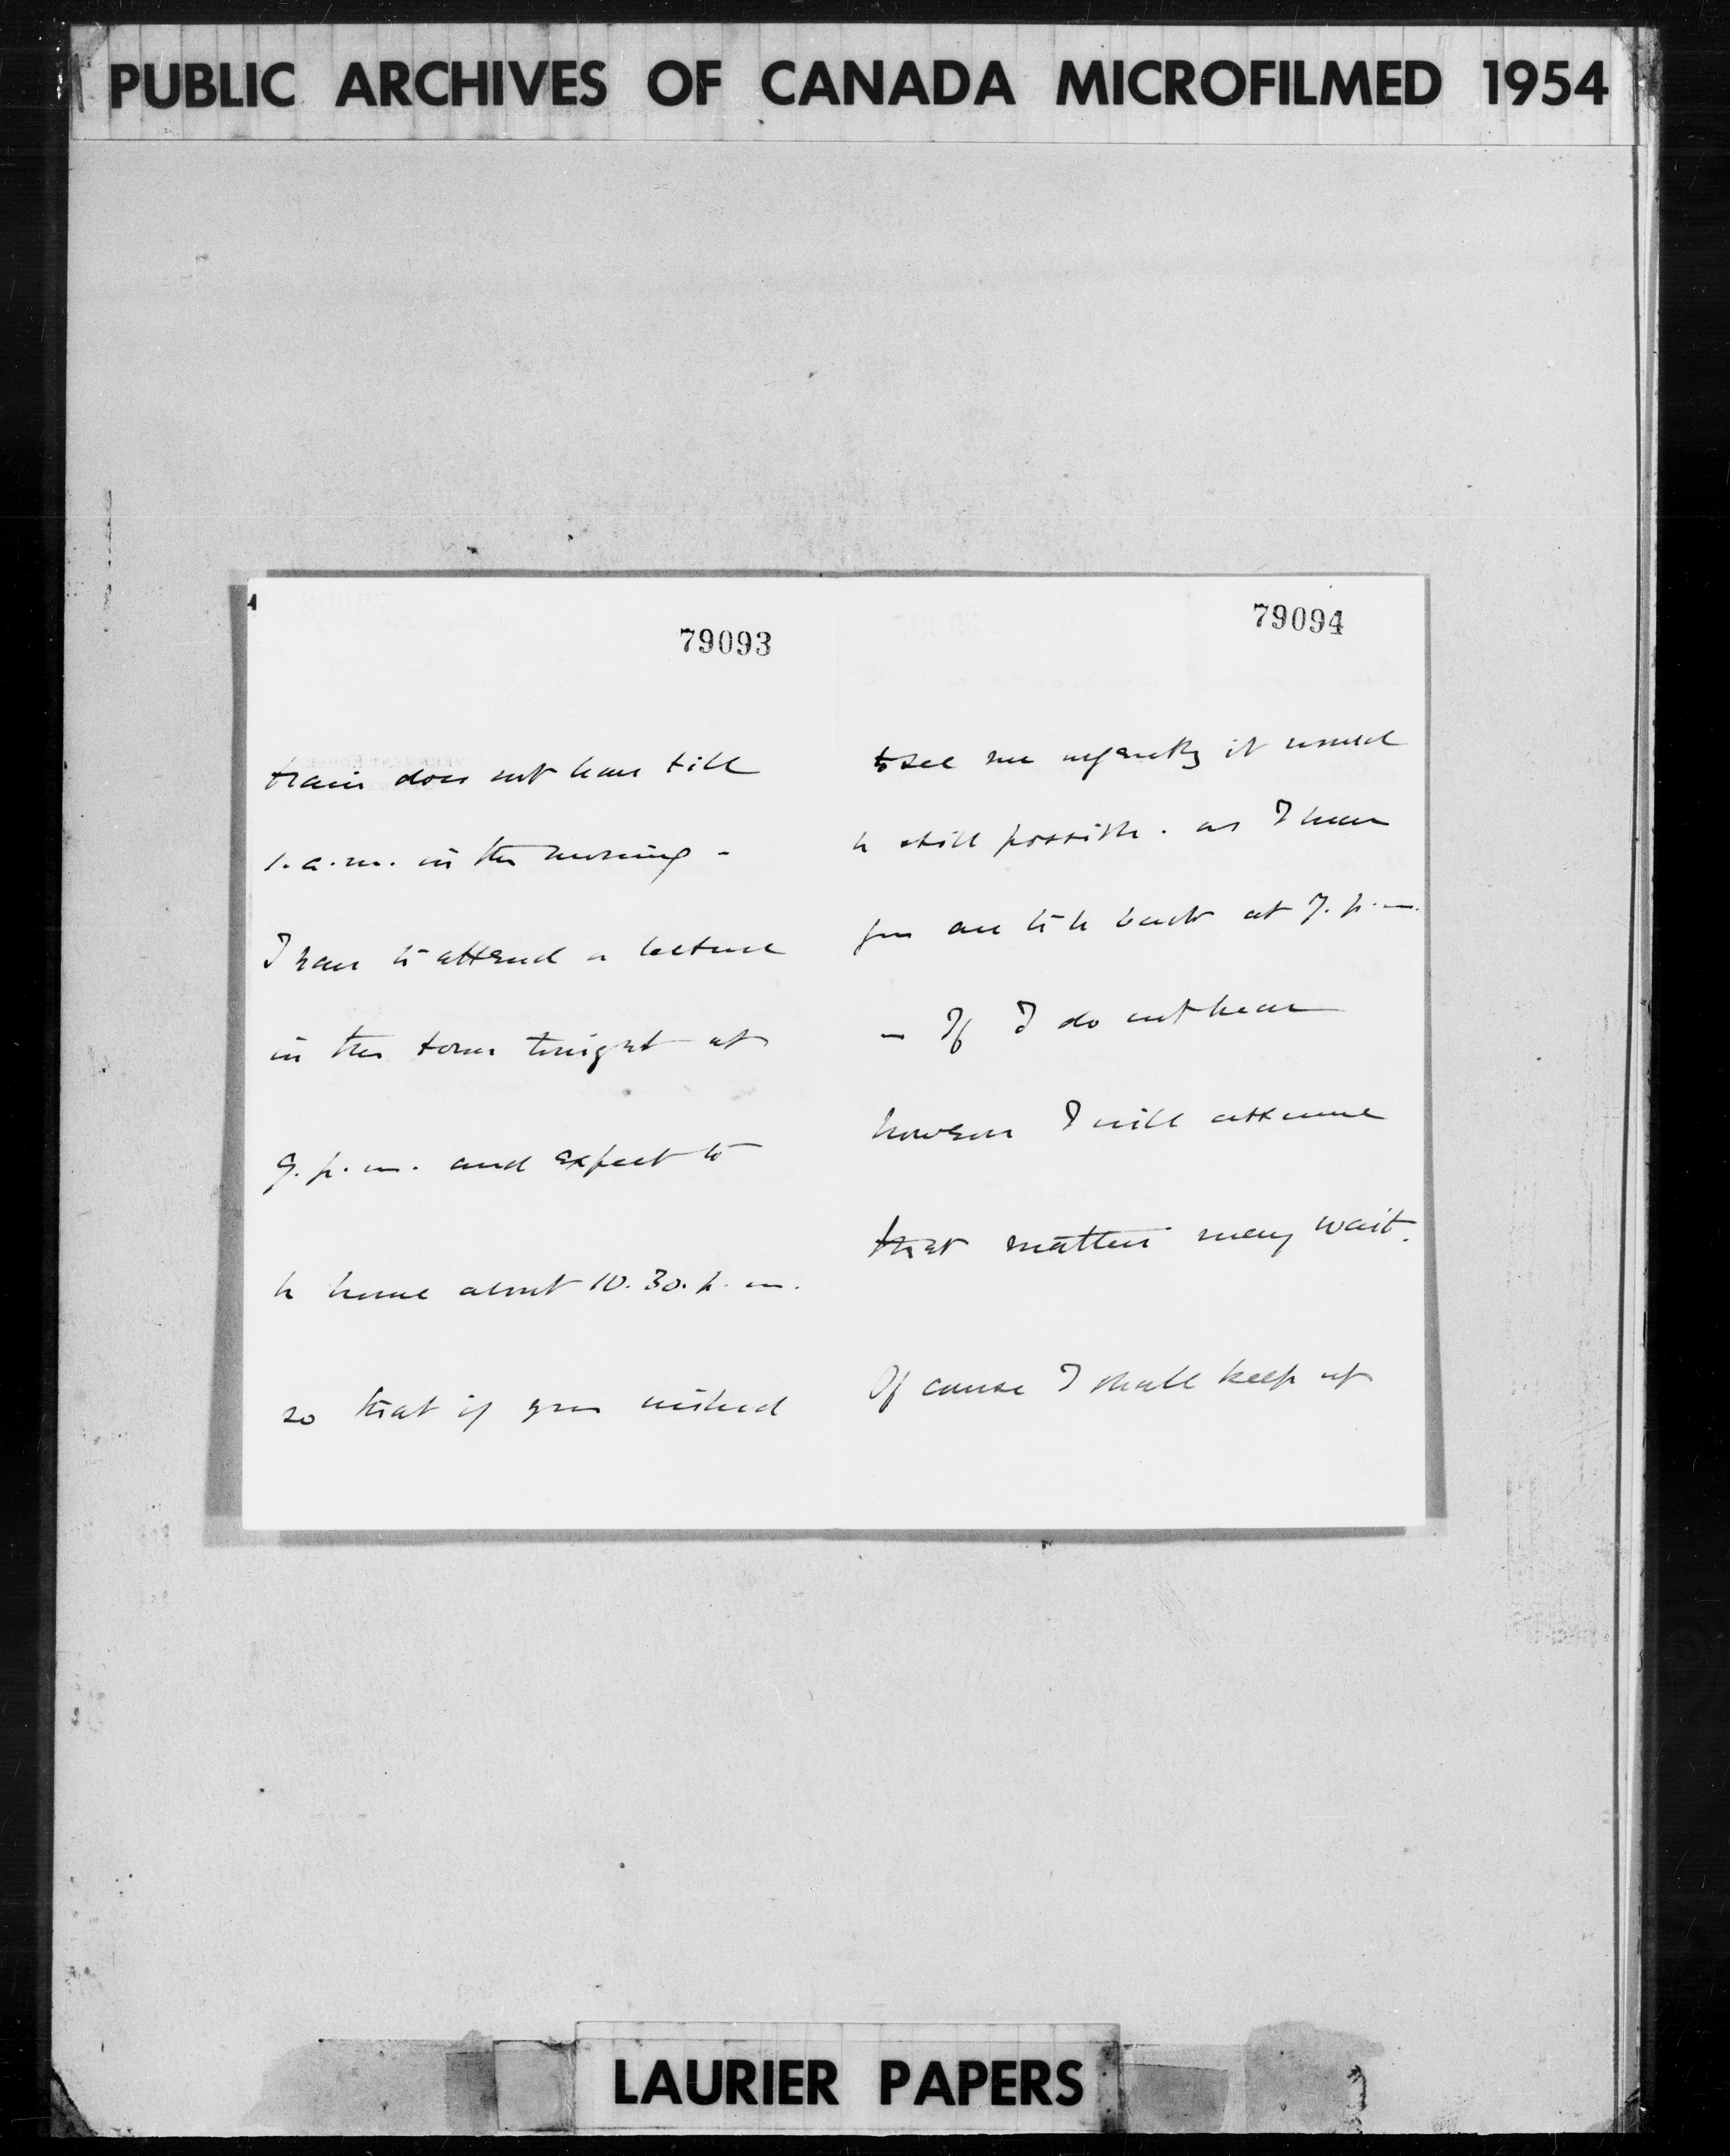 PUBLIC ARCHIVES OF CANADA MICROFILMED 1954
79093
train does not leave till
1. a.m. in the morning -
I have to attend a lecture
in the town tonight at
9. p.m. and expect to
be home about 10.30. p.m.
so that if you wished
79094
to see me urgently it would
be still possible. as I hear
you are to be back at 7. p.m.
- If I do not hear
however I will assume
that matters may wait.
Of course I shall keep up
LAURIER PAPERS